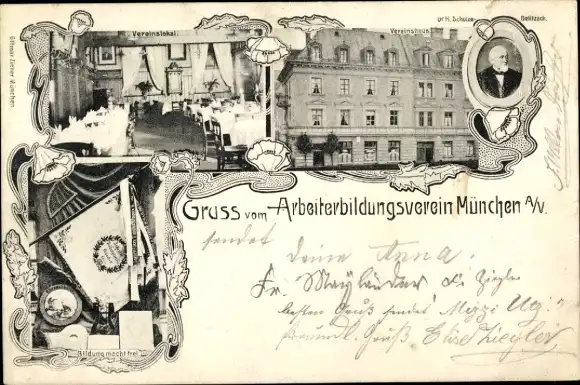 Vereinslokal.
Vereinshaus.
Dr H. Schulze-
Delitzsch.
Ottmar Zieher München
Bildung macht frei
Gruss vom Arbeiterbildungsverein München A/V.
sendet Deine Anna.
Fr. Mayländer Ziegler
besten Gruß sendet
Gruß Elise Ziegler